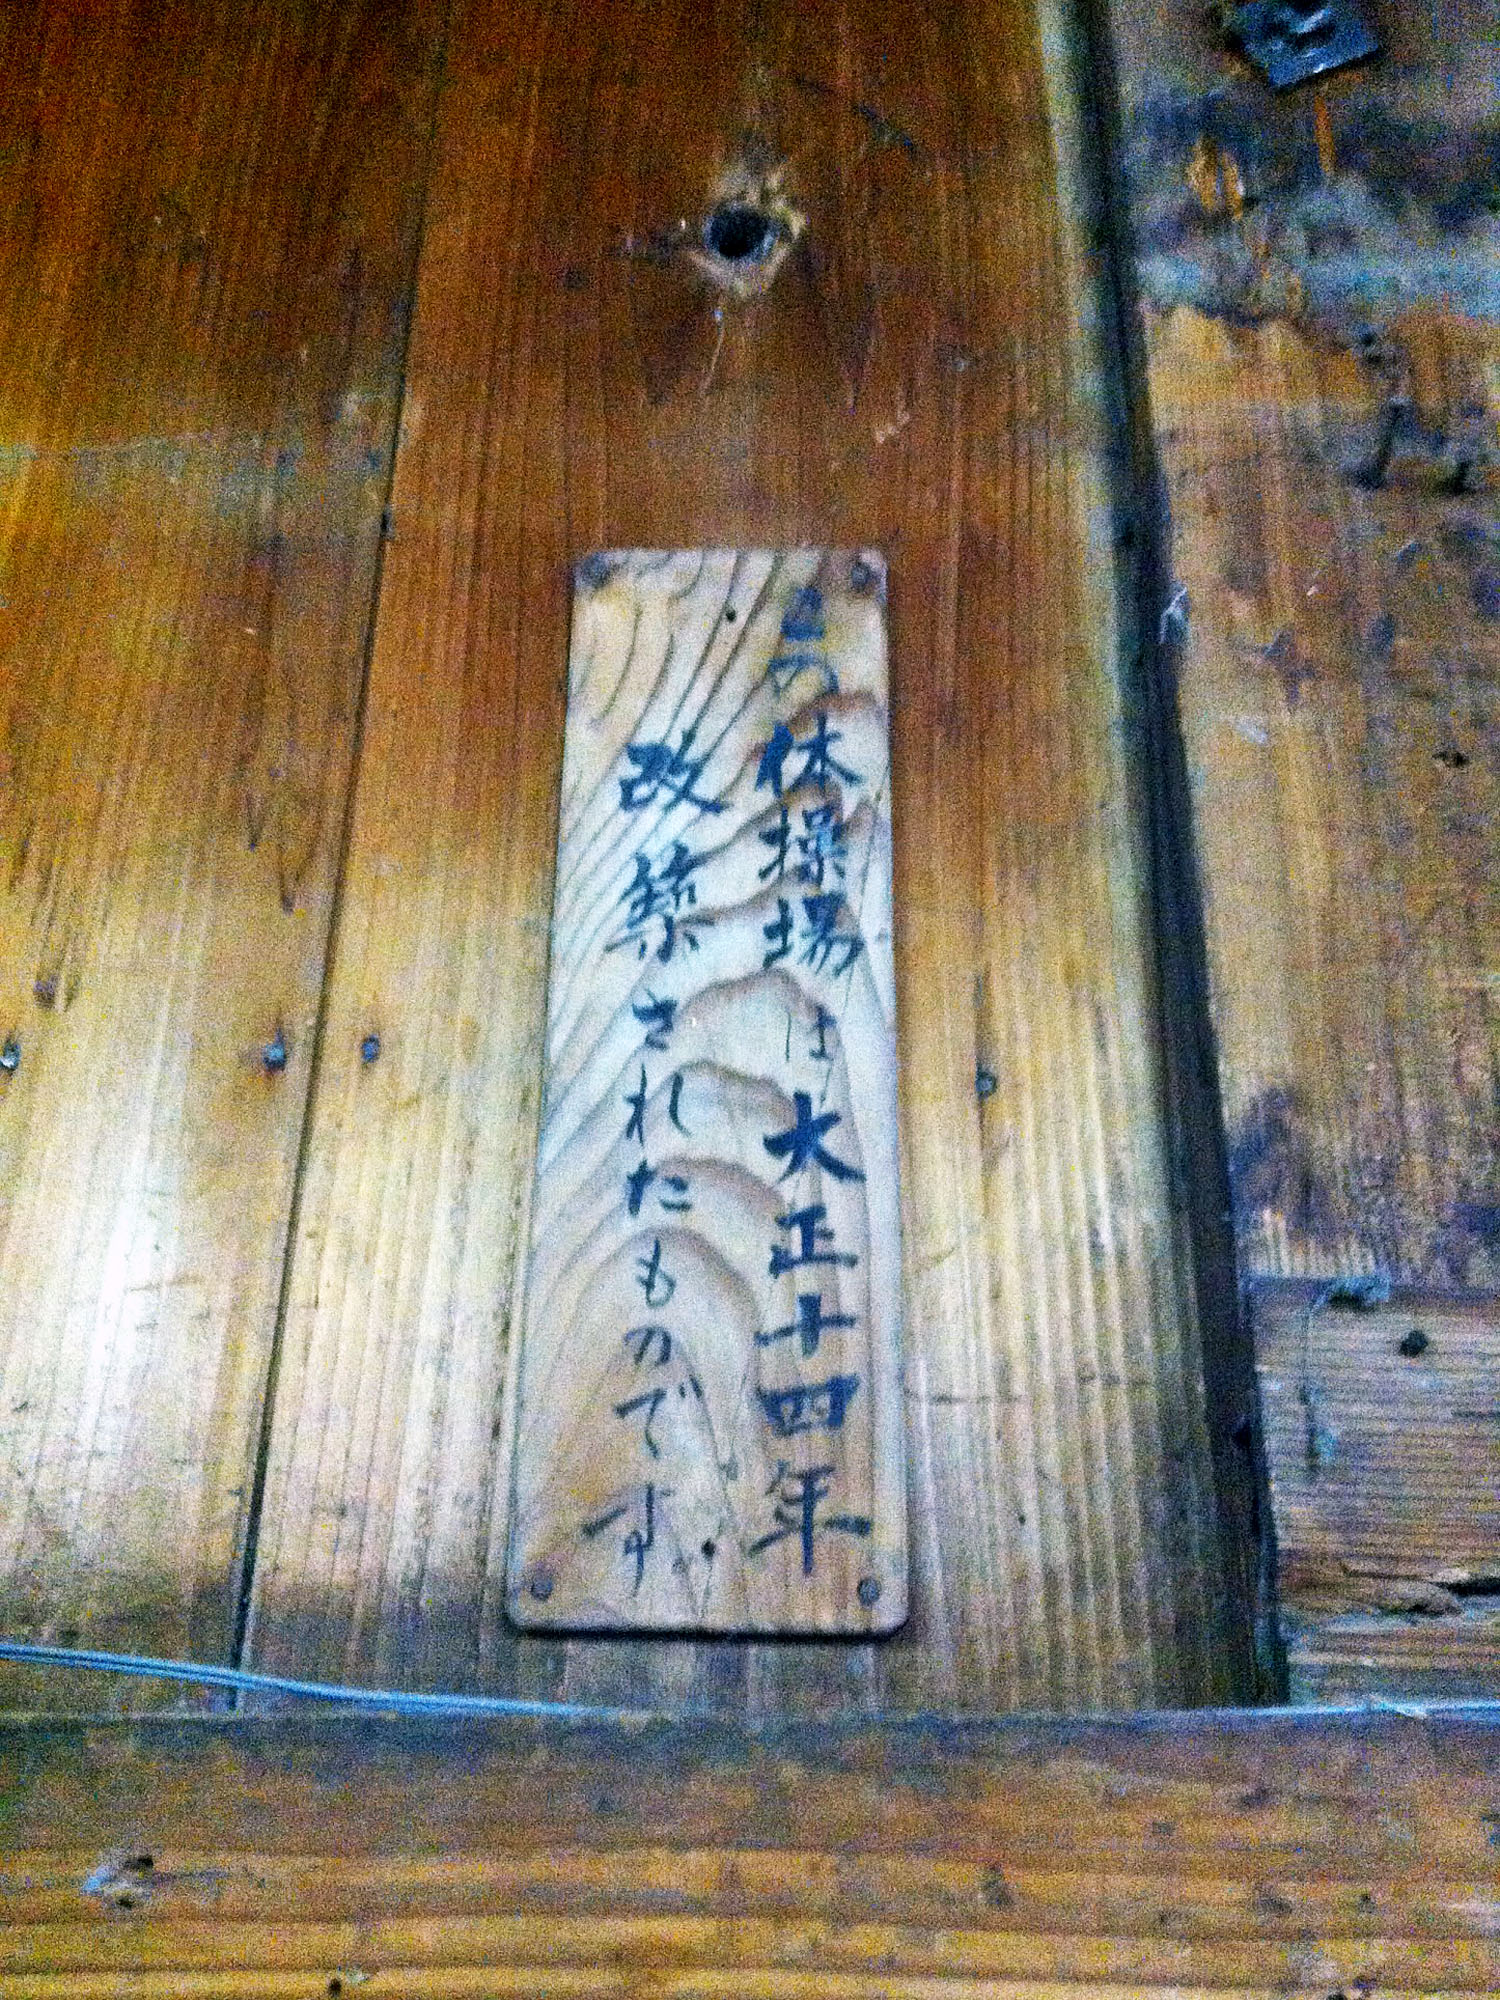 この体操場は大正十四年
改築されたものです